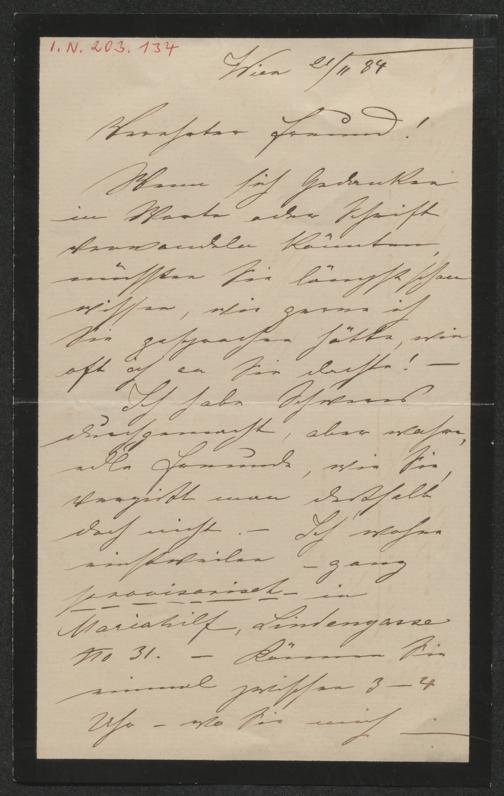 I. N. 203.134
Wien 21/II 84
Verehrter Freund!
Wenn sich Gedanken
in Worte oder Schrift
verwandeln könnten,
müssten Sie längst schon
wissen, wie gerne ich
Sie gesprochen hätte, wie
oft ich an Sie dachte! —
Ich habe Schweres
durchgemacht, aber wahre,
edle Freunde, wie Sie,
vergißt man deßhalb
doch nicht. — Ich wohne
einstweilen – ganz
provisorisch – in
Mariahilf, Lindengasse
No 31. — Können Sie
einmal zwischen 3–4
Uhr – wo Sie mich —